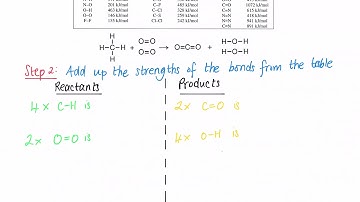 N–O 201 kJ/mol C–F 485 kJ/mol C≡O 1072 kJ/mol
O–H 463 kJ/mol C–Cl 328 kJ/mol C=N 615 kJ/mol
O–O 146 kJ/mol C–S 259 kJ/mol N=N 418 kJ/mol
F–F 155 kJ/mol Cl–Cl 242 kJ/mol N≡N 941 kJ/mol
C≡N 891 kJ/mol
H
H–C–H + O=O O=O → O=C=O + H–O–H H–O–H
H
Step 2: Add up the strengths of the bonds from the table
Reactants Products
4 x C-H is 2x C=O is
2x O=O is 4x O-H is